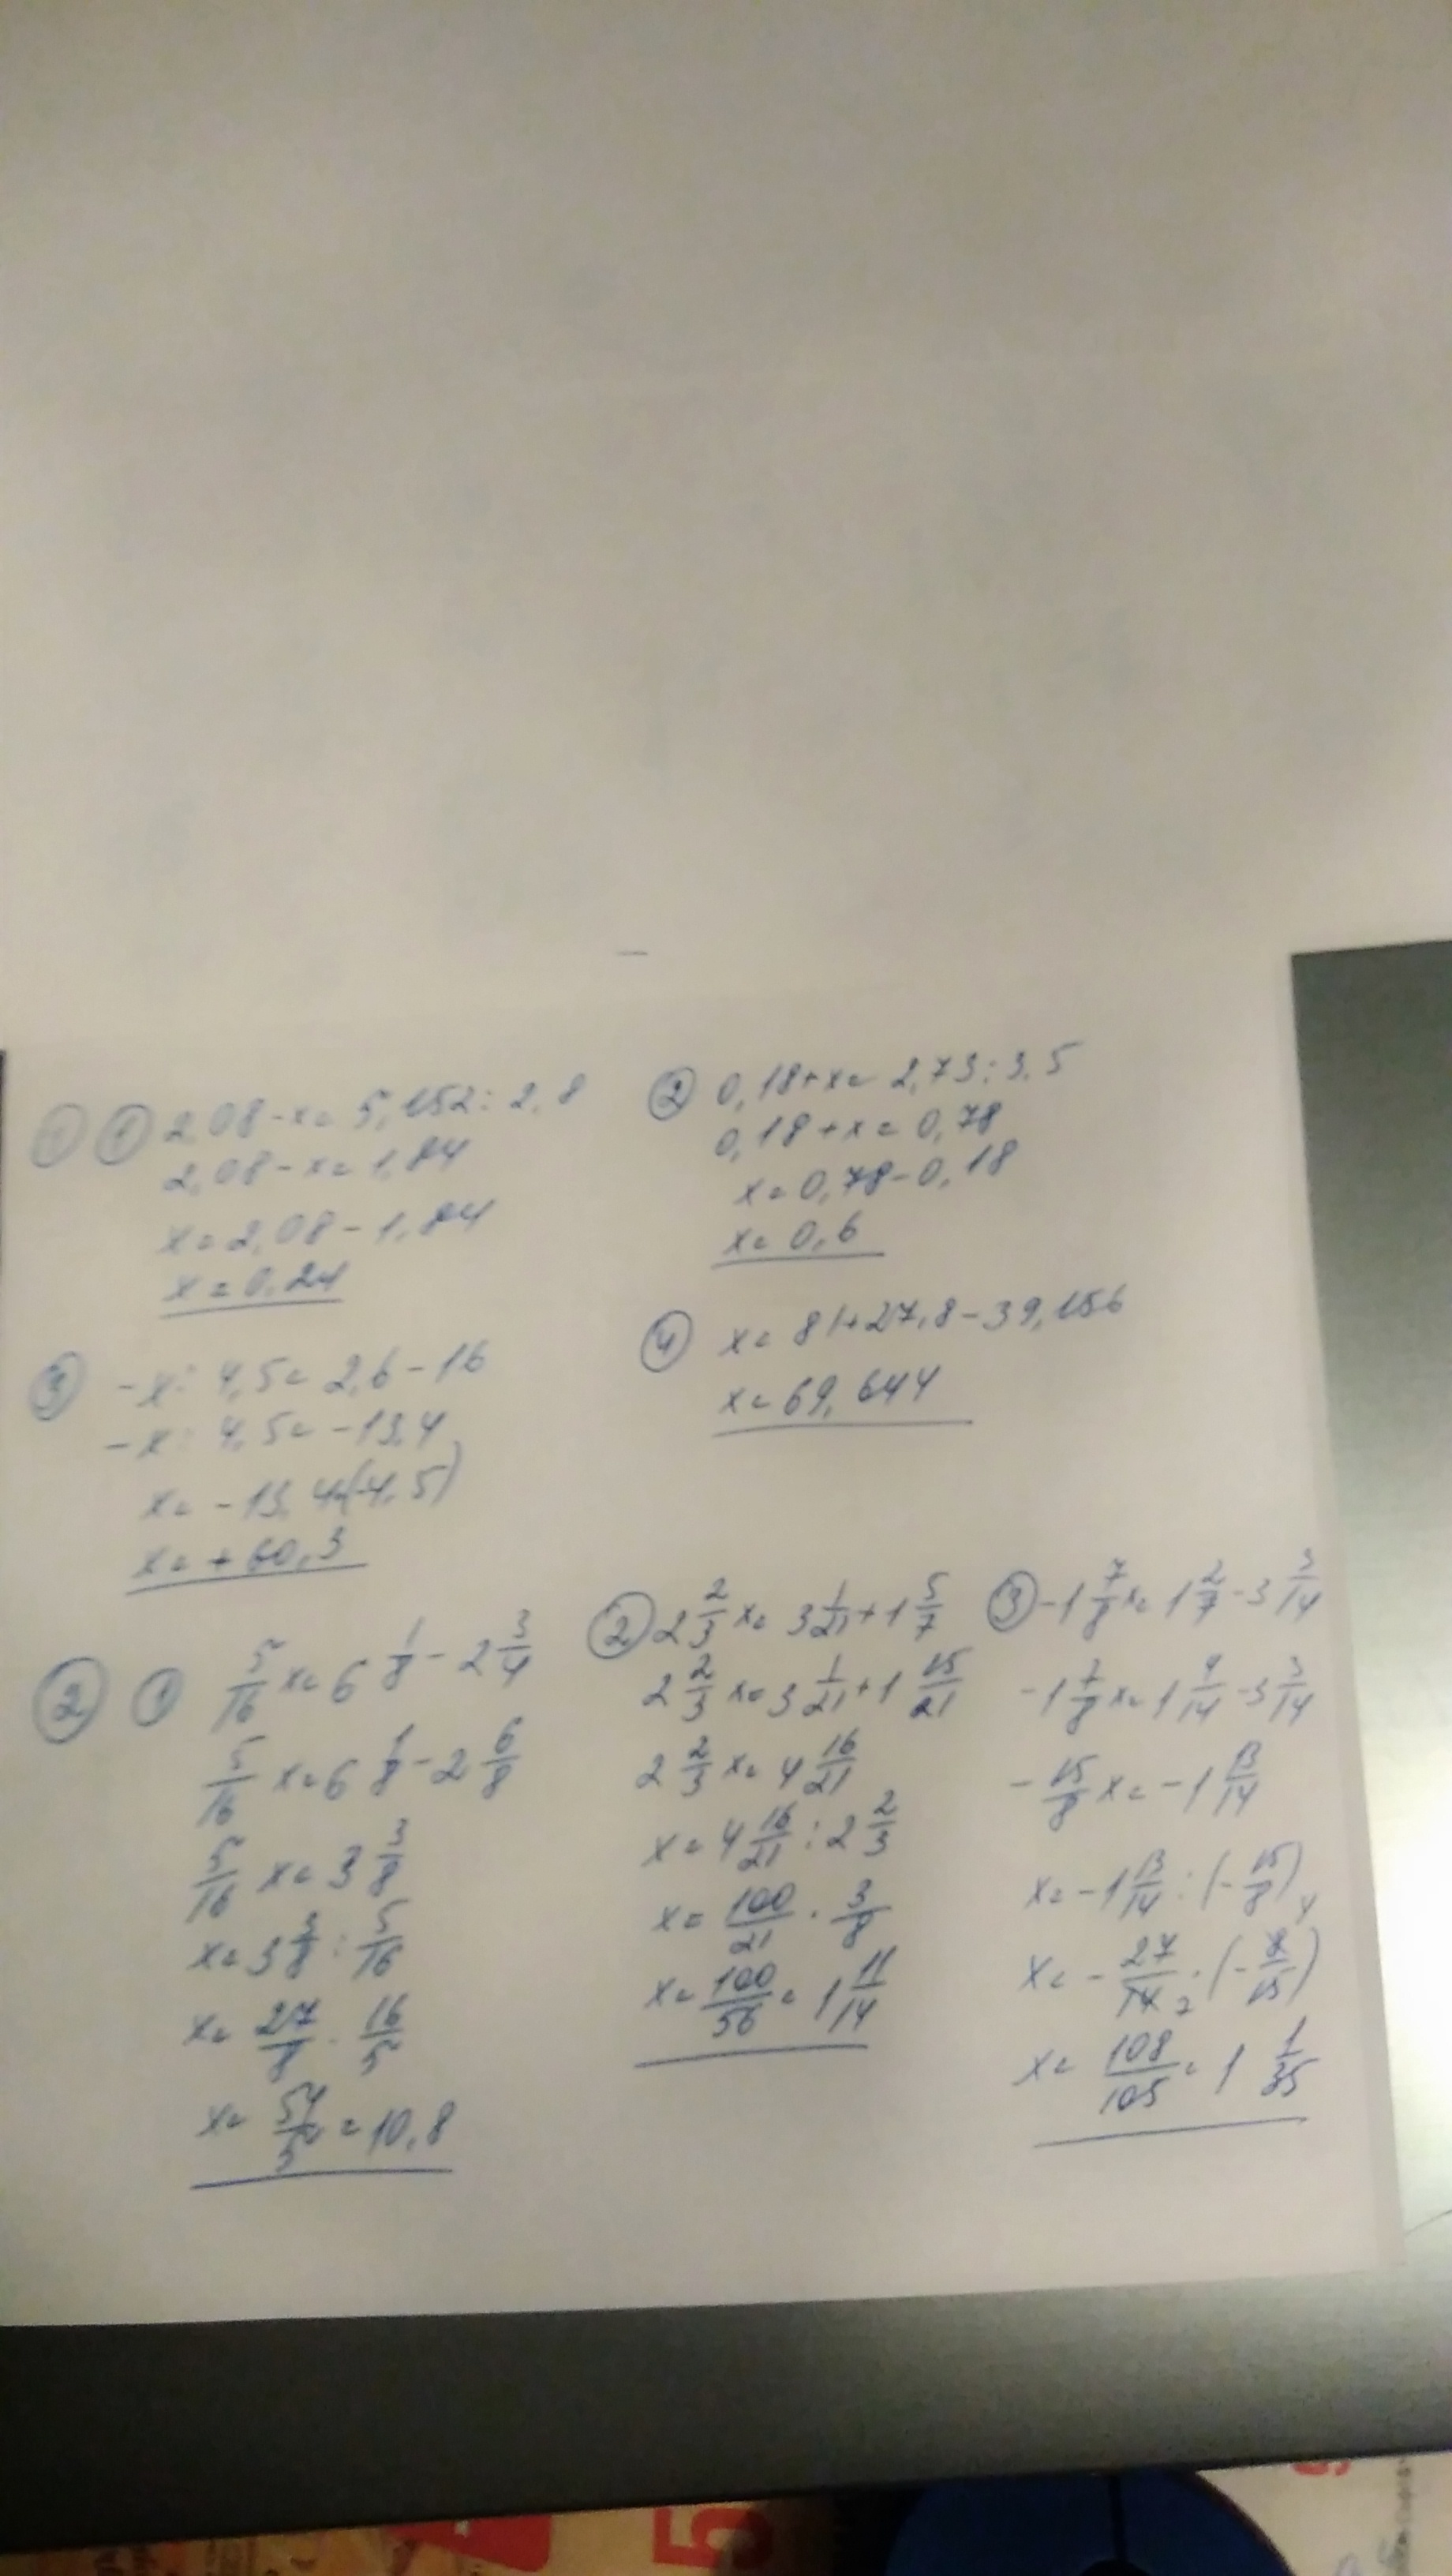 ① ① 2,08-x=5,152:2,8
2,08-x=1,84
x=2,08-1,84
x=0,24
② 0,18+x=2,73:3,5
0,18+x=0,78
x=0,78-0,18
x=0,6
③ -x:4,5=2,6-16
-x:4,5=-13,4
x=-13,4·(-4,5)
x=+60,3
④ x=81+27,8-39,156
x=69,644
② ① 5/16 x=6 1/8-2 3/4
5/16 x=6 1/8-2 6/8
5/16 x=3 3/8
x=3 3/8:5/16
x=27/8·16/5
x=54/5=10,8
② 2 2/3 x=3 1/21+1 5/7
2 2/3 x=3 1/21+1 15/21
2 2/3 x=4 16/21
x=4 16/21:2 2/3
x=100/21·3/8
x=100/56=1 11/14
③ -1 7/8 x=1 2/7-3 3/14
-1 7/8 x=1 4/14-3 3/14
-15/8 x=-1 13/14
x=-1 13/14:(-15/8)
x=-27/14·(-8/15)
x=108/105=1 1/35
5